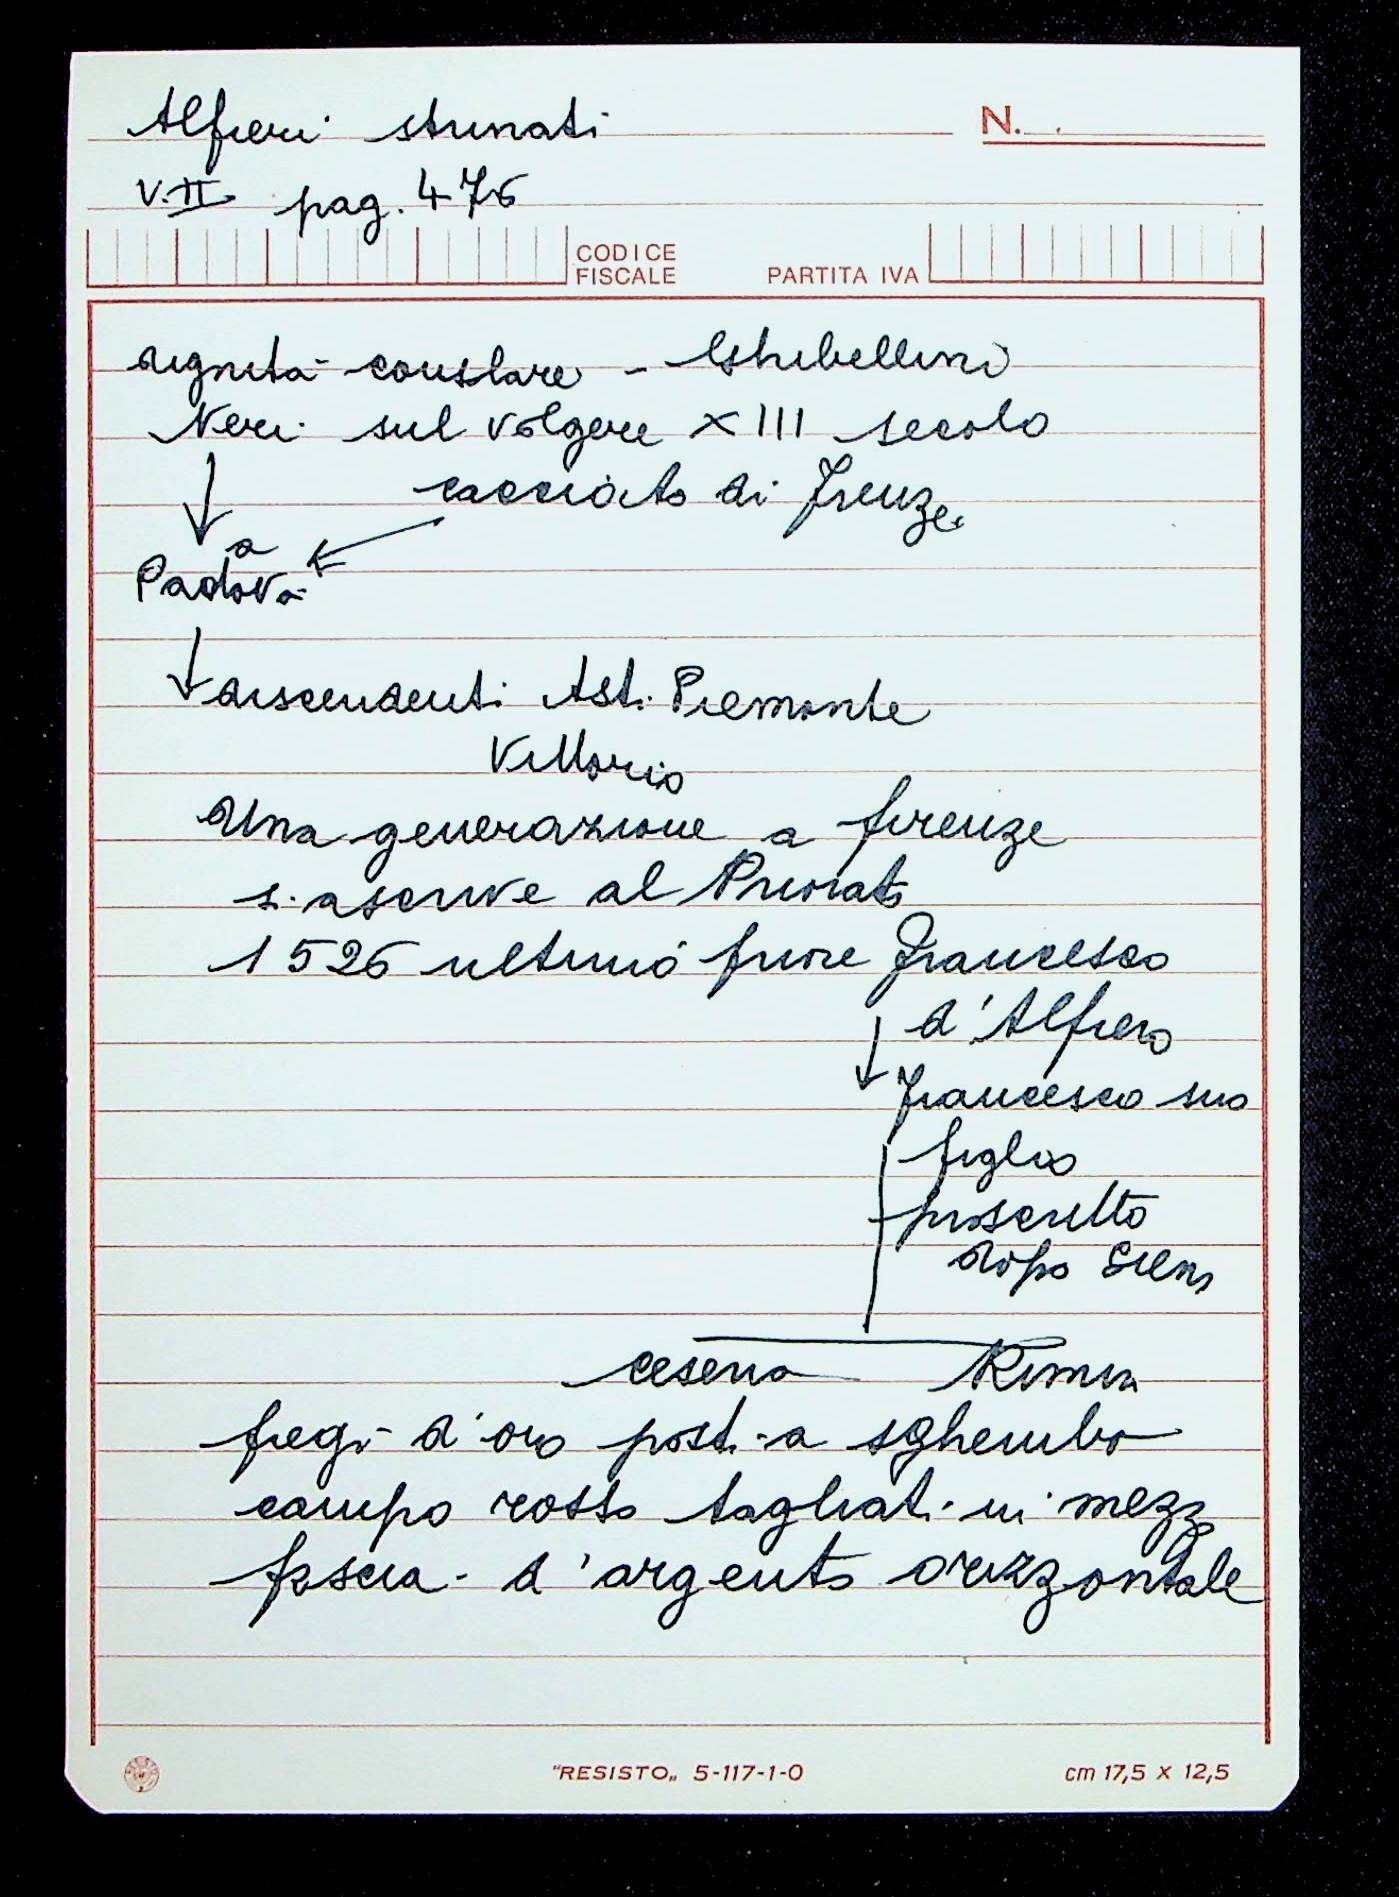 Alfieri strinati
N.
V. II pag. 476
CODICE FISCALE
PARTITA IVA
dignità consolare - Ghibellini
Neri sul volgere XIII secolo
cacciato di Firenze
a
Padova
discendenti Asti Piemonte
Vittorio
Una generazione a firenze
si ascrive al Priorato
1526 ultimo priore Francesco
d'Alfiero
Francesco suo
figlio
proscritto
dopo Siena
cesena Rimin
fregi d'oro posti a sghembo
campo rosso tagliati in mezz
fascia d'argento orizzontale
"RESISTO„ 5-117-1-0
cm 17,5 x 12,5